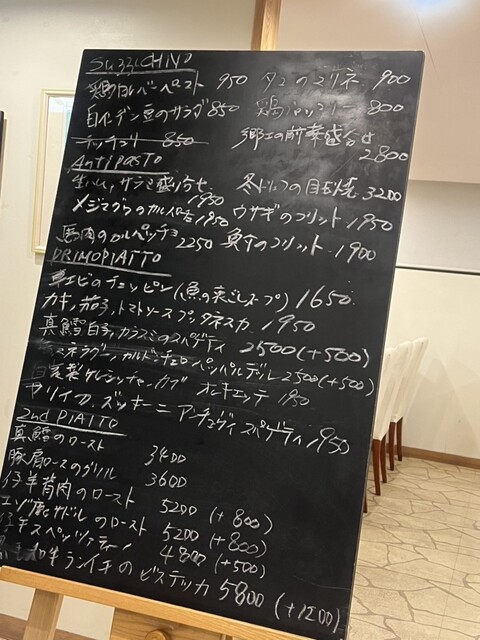 STUZZICHINO
鶏白レバーペースト 950 タコのマリネ 900
白インゲン豆のサラダ 850 鶏 800
850 郷土の前菜盛合せ
2800
Antipasto
生ハム、サラミ盛り合せ 1950 冬トリュフの目玉焼 3200
メジマグロのカルパッチョ 1950 ウサギのフリット 1950
馬肉のカルペッチョ 2250 のフリット 1900
PRIMOPIATTO
エビのチュッピン(魚の裏ごしスープ) 1650
カキ、茄子、トマトソース プッタネスカ 1950
真鱈白子、カラスミのスパゲティ 2500 (+500)
ラグー、カルドンチェロ パッパルデッレ 2500 (+500)
自家製サルシッチャ、カブ オレキエッテ 1950
ヤリイカ、ズッキーニ アンチョヴィ スパゲティ 1950
2nd PIATTO
真鱈のロースト 3400
豚肩ロースのグリル 3600
仔羊背肉のロースト 5200 (+800)
エゾ鹿 のロースト 5200 (+800)
仔牛スペッツァティーノ 4800 (+500)
和牛ランイチのビステッカ 5800 (+1200)